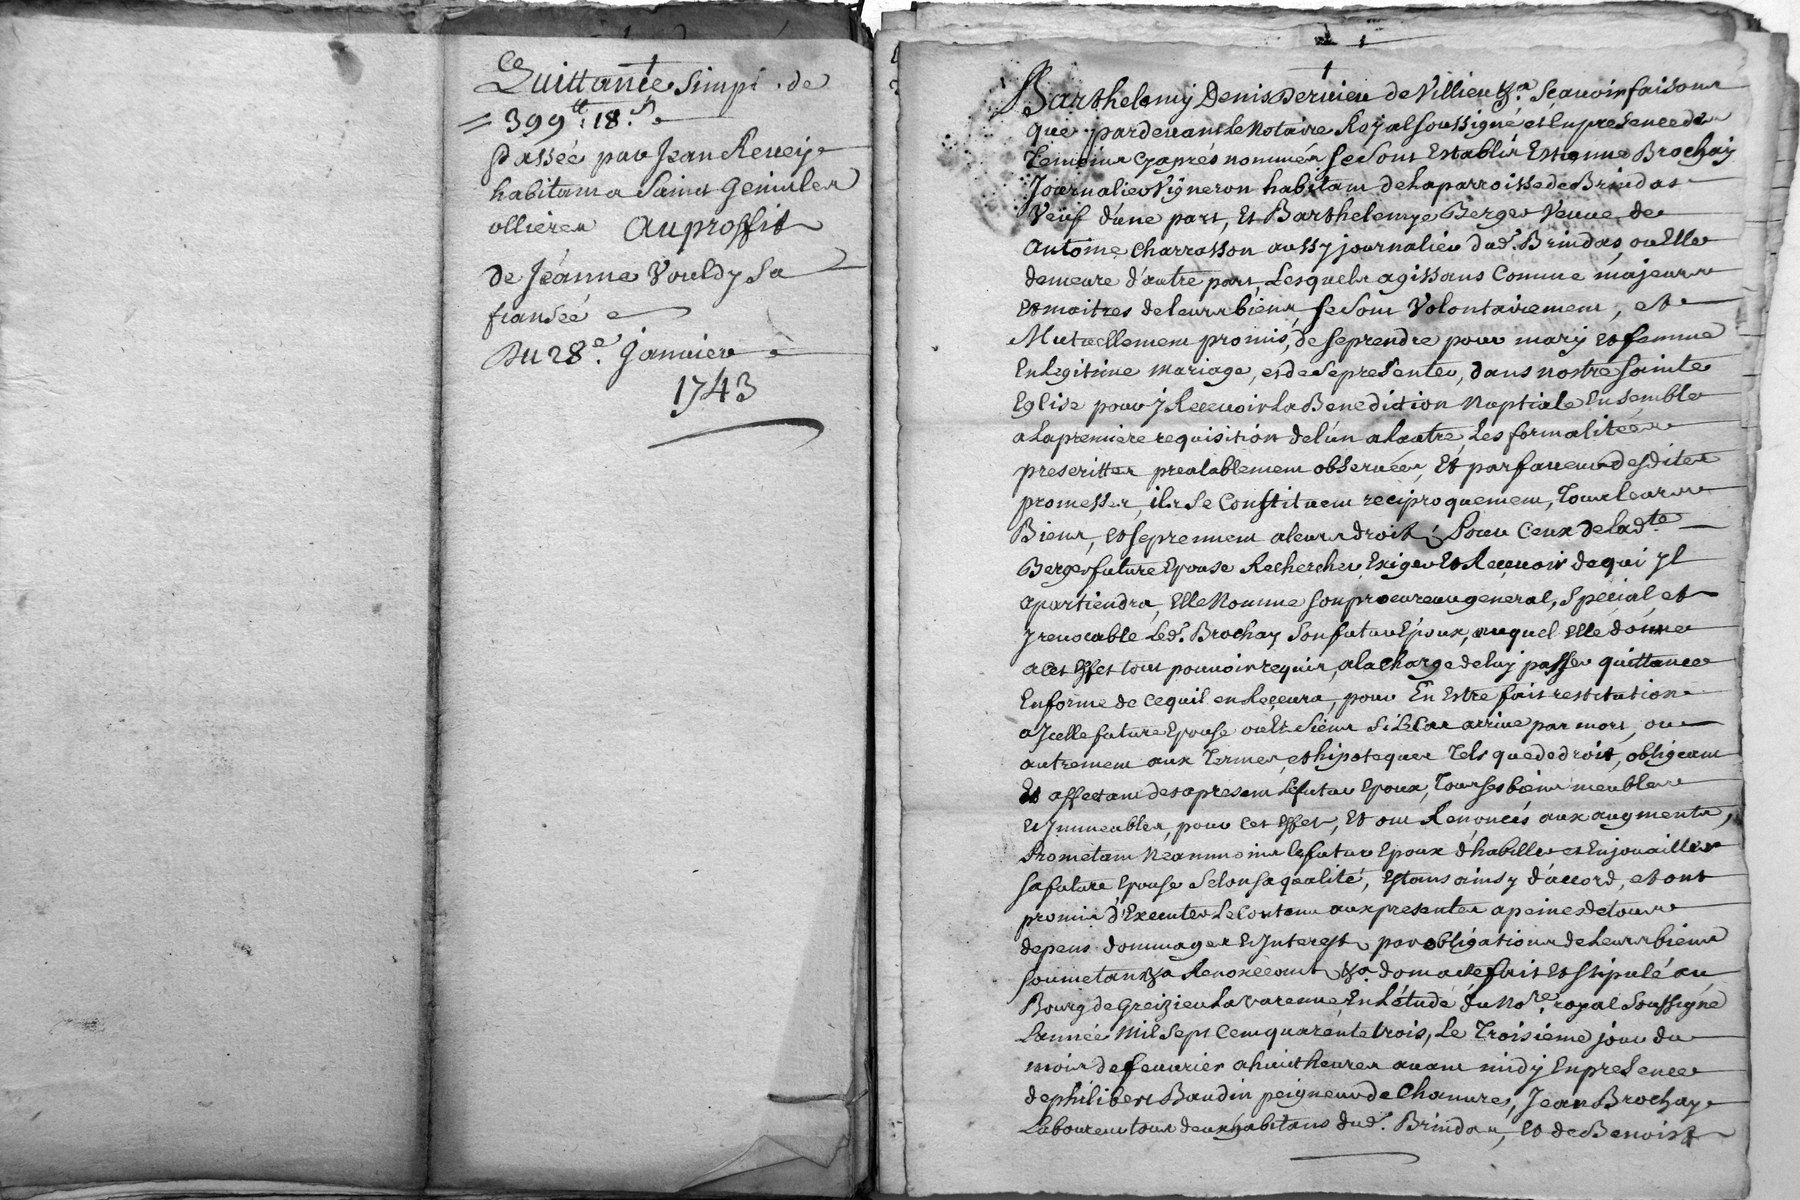 Quittance Simpl. de
399 tt. 18 s.
Passée par Jean Reveiz
habitant a Saint Genis les
ollieres Au proffit
de Jeanne Vouldy Sa
fiansée
Du 28e. Janvier
1743
Barthelemy Denis Dervieu de Villieu &a. Scavoir faisons
que pardevant le Notaire Royal soussigné et En presence des
Temoins cy aprés nommés se sont Establis Estienne Brochay
Journalier Vigneron habitant de la parroisse de Brindas
Veuf d'une part, Et Barthelemye Berger Veuve de
Antoine Charrasson aussy journalier dud. Brindas, ou Elle
demeure d'autre part, Lesquels agissants Comme majeurs
Et maitres de leurs biens, se sont Volontairement, et
Mutuellement promis, de se prendre pour mary et femme
En legitime mariage, et de se presenter, dans nostre Sainte
Eglise pour y Recevoir La Benediction Nuptiale Ensemble
a La premiere requisition de l'un a L'autre, Les formalitées
prescrittes prealablement observées, Et par faveur desdites
promesses, ils se Constituent reciproquement, Tous leurs
Biens, et se prennent a leurs droits; Pour Ceux de lad.te
Berger future Epouse Rechercher, Exiger Et Recevoir de qui Il
apartiendra, Elle Nomme son procureur general, Special, et
Irrevocable Led. Brochay Son futur Epoux, auquel Elle donne
a Cet Effet tout pouvoir requis, a la charge de luy passer quittance
En forme de ce quil en Recevra, pour En Estre fait restitution
a Icelle future Epouse ou Es Siens Si Le Cas arrive par mort, ou
autrement aux Termes, et hipoteques Tels que de droit, obligeant
Et affectant des apresent Le futur Epoux, Tous ses biens meubles
Et Immeubles, pour Cet Effet, Et ont Renoncés aux augments,
Prometant Neanmoins le futur Epoux d'habiller et Enjouailler
sa future Epouse Selon sa qualité, Estant ainsy d'accord, et ont
promis d'Executer Le Contenu aux presentes a peines de tous
depens dommages Et Interest par obligations de Leurs biens
soumetant &a Renonceant &a dom acte fait Et Stipulé au
Bourg de Greizieu La Varenne En L'étude du No.re royal Soussigné
L'année Mil Sept Cent quarente trois, Le Troisieme jour du
mois de fevrier a huit heures avant midy En presence
de philibert Baudin peigneur de Chanvres, Jean Brochay
Laboureur tous deux habitans dud. Brindas, Et de Benoist